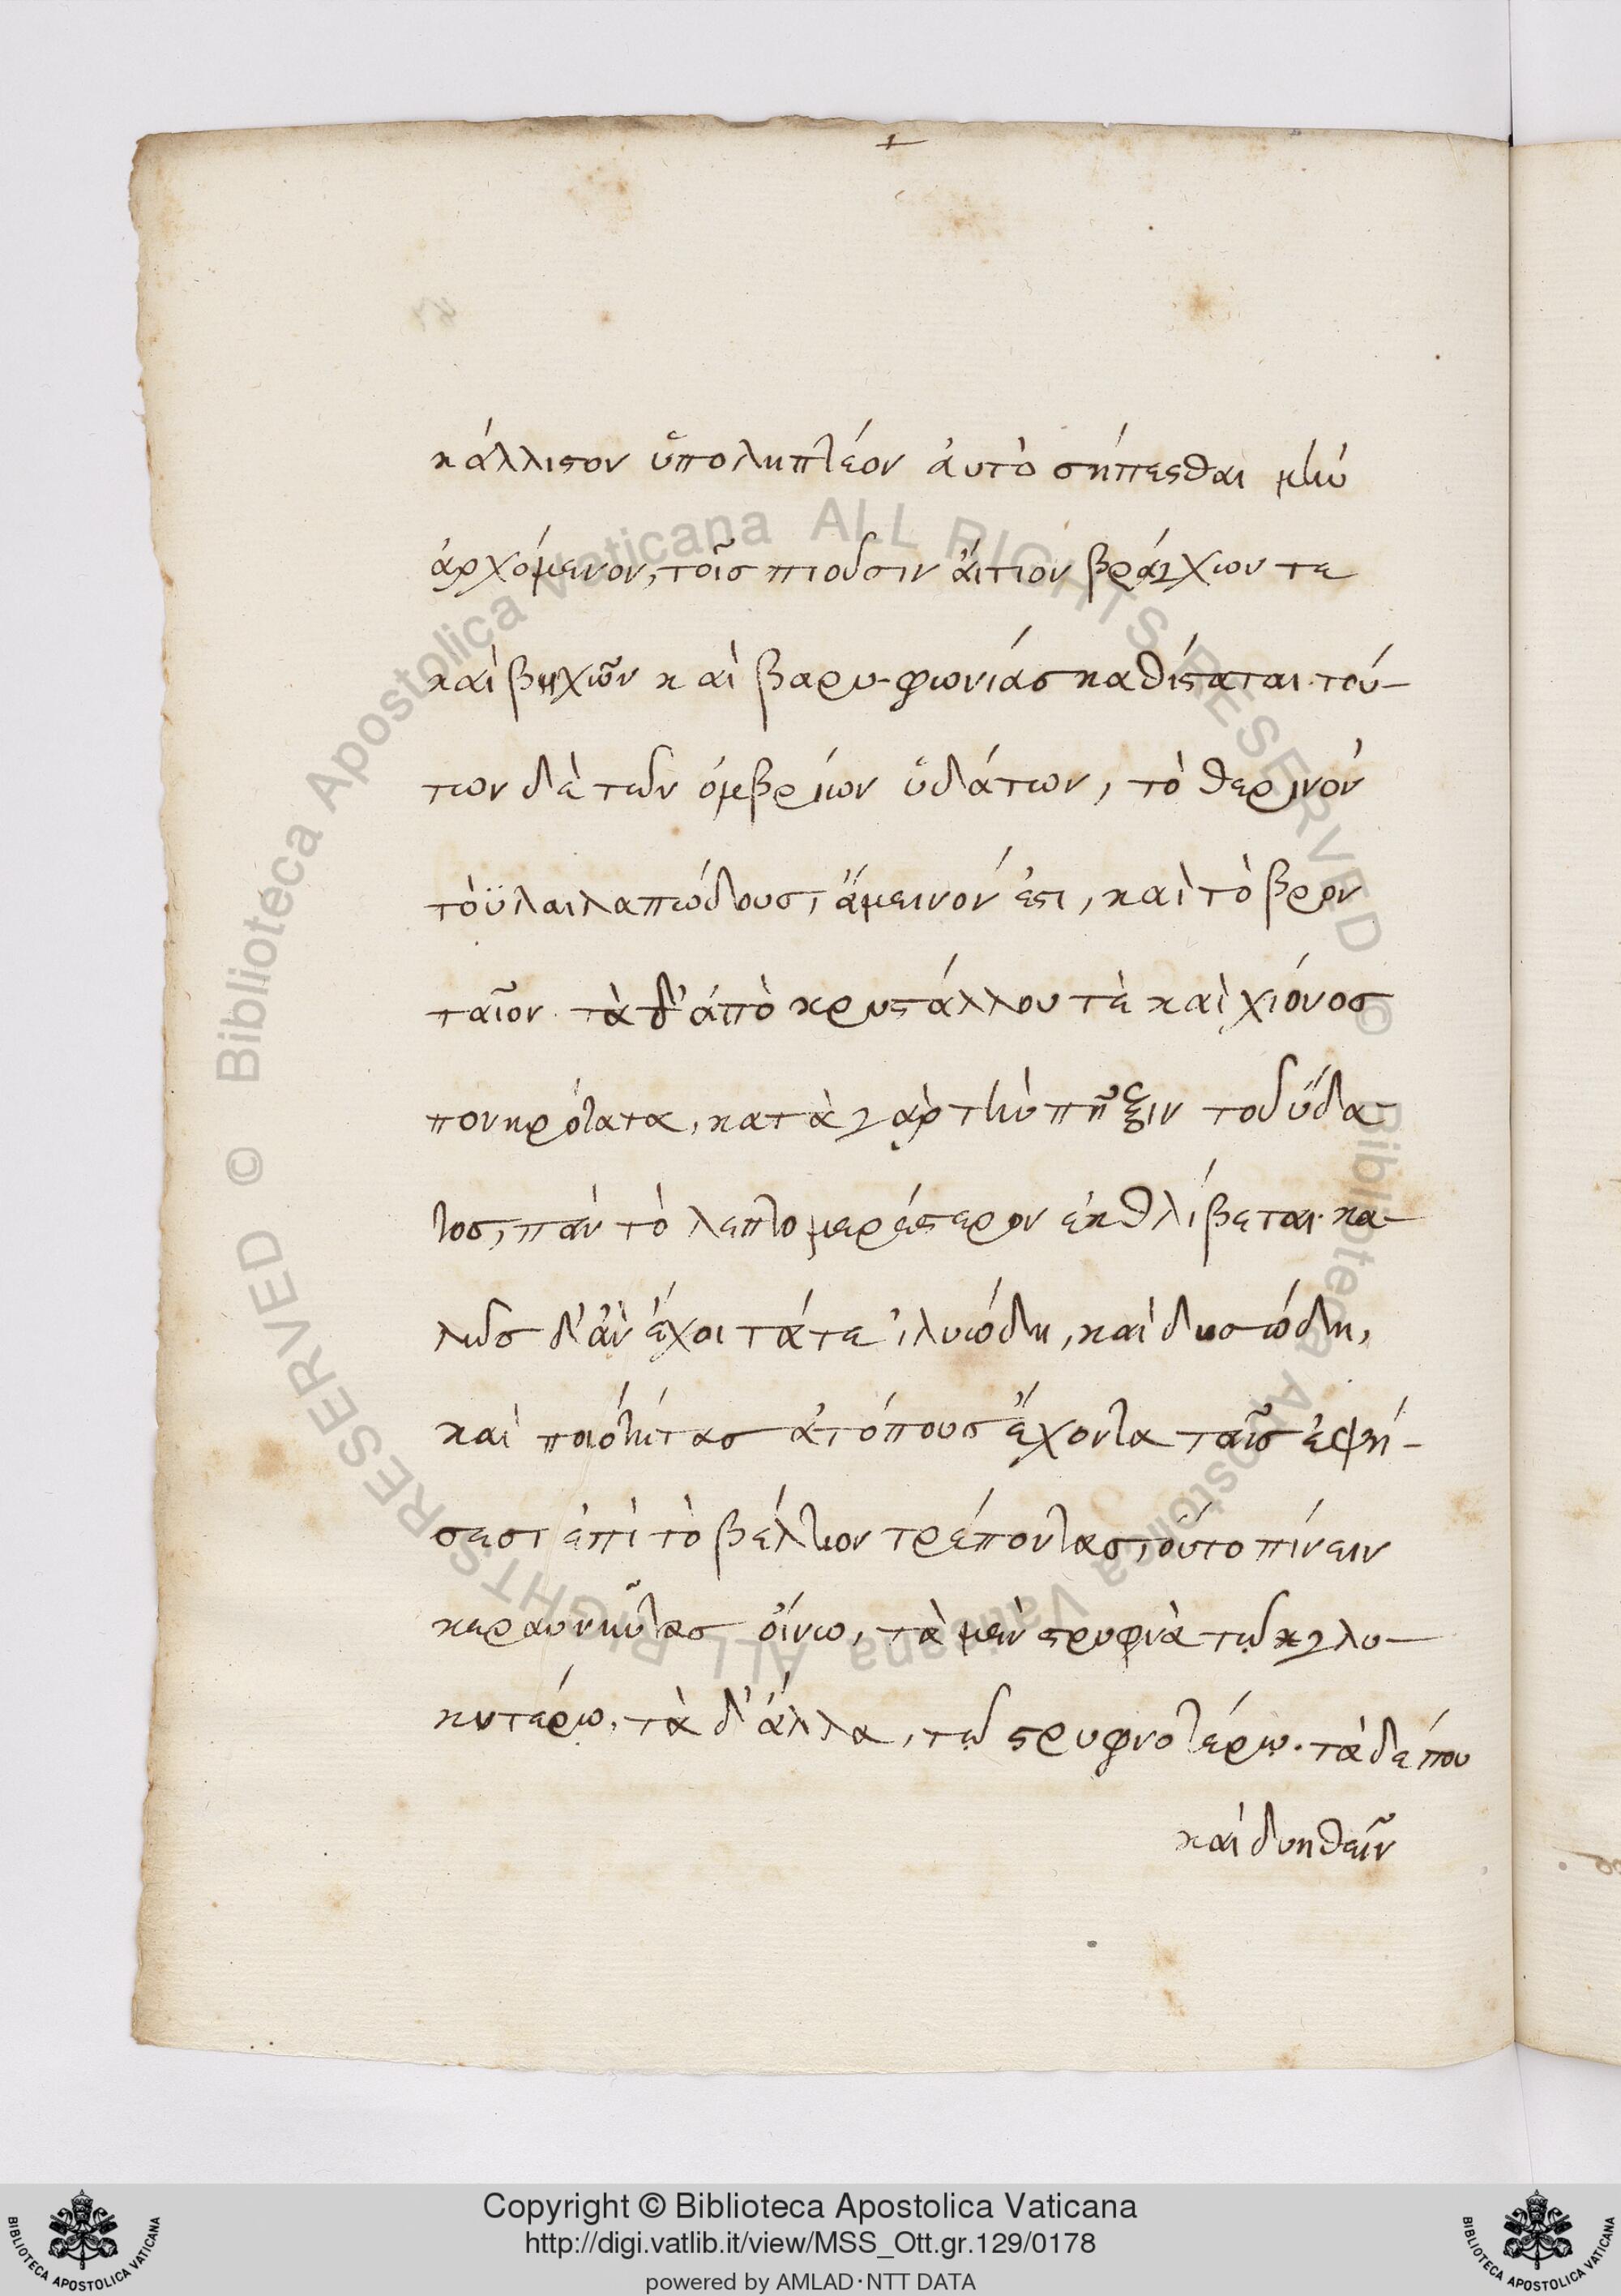 κάλλιστον ὑποληπτέον ἀυτὸ σήπεσθαι μὴν
ἀρχόμενον, τοῖς πιοῦσιν ἄιτιον βράγχων τε
καὶ βηχῶν καὶ βαρυφωνίας καθίσταται· τού-
των δὲ τῶν ὀμβρίων ὑδάτων, τὸ θερινὸν
τοῦ λαιλαπώδους, ἄμεινόν ἐστι, καὶ τὸ βρον
ταῖον· τὰ δ' ἀπὸ κρυστάλλου τὲ καὶ χιόνος
πονηρότατα, κατὰ γὰρ τὴν πῆξιν τοῦ ὕδα-
τος, πᾶν τὸ λεπτομερέστερον ἐκθλίβεται· κα-
λῶς δ' ἂν ἔχοι τά τε ἰλυώδη, καὶ δυσώδη,
καὶ ποιότητας ἀτόπους ἔχοντα ταῖς ἑψή-
σεσι ἐπὶ τὸ βέλτιον τρέποντας, τοῦτο πίνειν
κεραυνῦντας οἴνω, τὰ μὲν στρυφνὰ τῷ γλυ-
κυτέρῳ, τὰ δ' ἄλλα, τῷ στρυφνοτέρῳ· τὰ δέ που
καὶ διηθεῖν
Copyright © Biblioteca Apostolica Vaticana
http://digi.vatlib.it/view/MSS_Ott.gr.129/0178
powered by AMLAD·NTT DATA
BIBLIOTECA APOSTOLICA VATICANA
BIBLIOTECA APOSTOLICA VATICANA
© Biblioteca Apostolica Vaticana ALL RIGHTS RESERVED
© Biblioteca Apostolica Vaticana ALL RIGHTS RESERVED